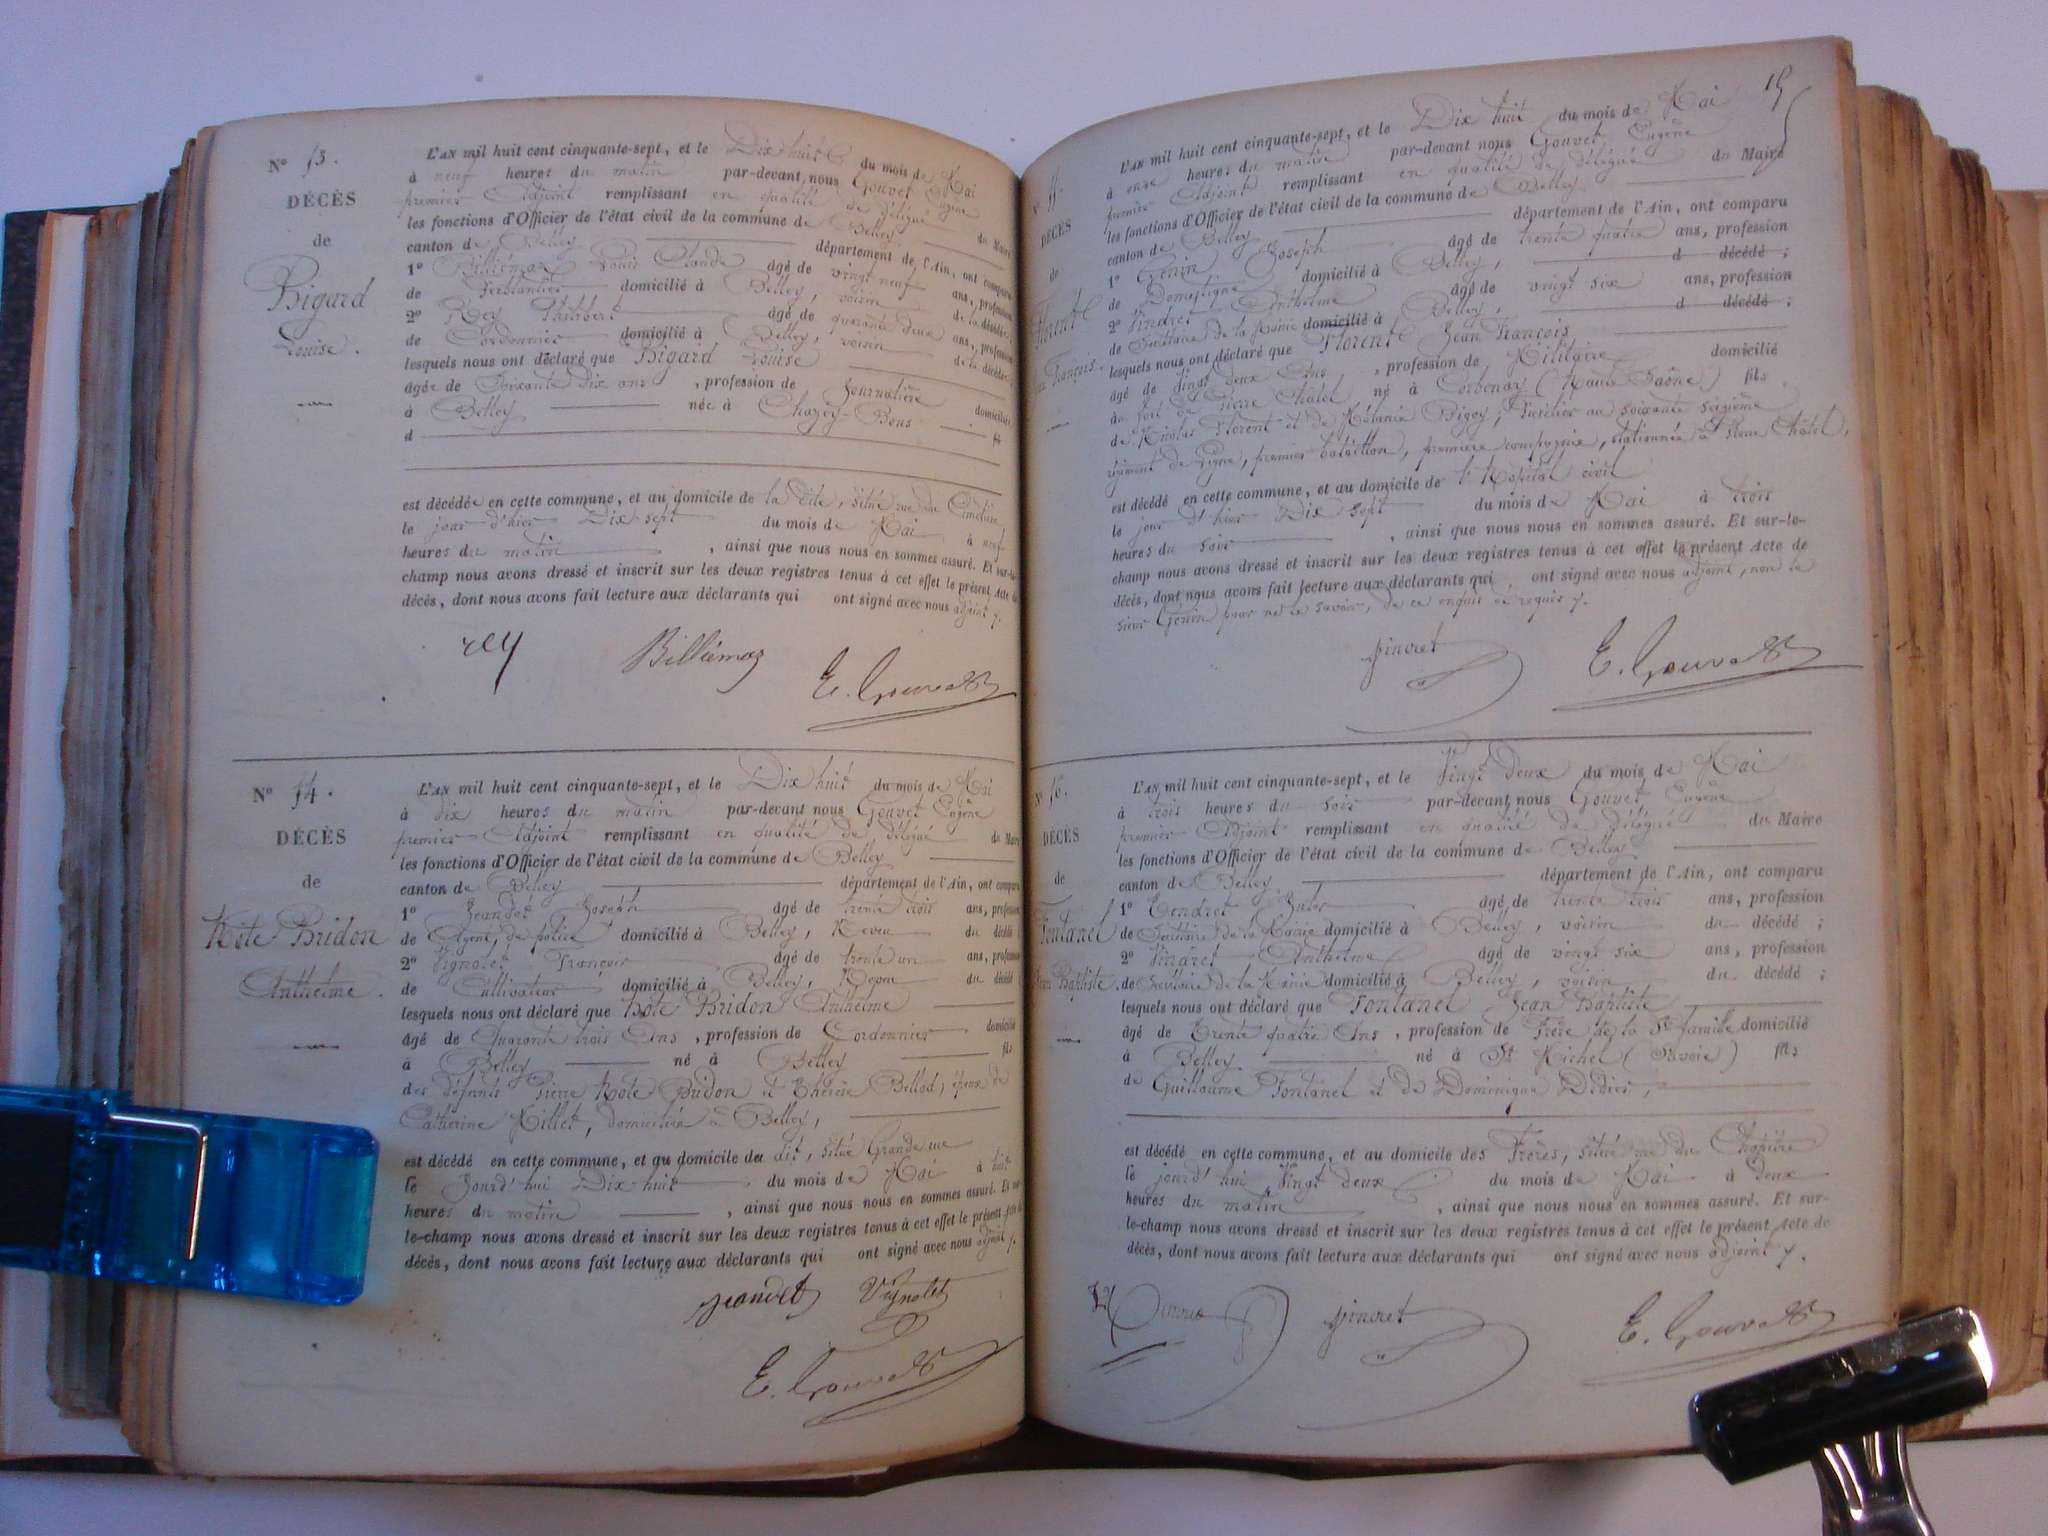 N° 53.
DÉCÈS
de
Bigard
Louise.
L'AN mil huit cent cinquante-sept, et le Dix huit du mois de Mai
à neuf heures du matin par-devant nous Gouvet Eugène
premier Adjoint remplissant en qualité de délégué du Maire
les fonctions d'Officier de l'état civil de la commune de Belley
canton de Belley département de l'Ain, ont comparu
1° Billiémaz Louis Claude âgé de vingt neuf ans, profession
de Ferblantier domicilié à Belley, voisin de la décédée;
2° Rey Philibert âgé de quarante deux ans, profession
de Cordonnier domicilié à Belley, voisin de la décédée;
lesquels nous ont déclaré que Bigard Louise
âgée de Soixante dix ans, profession de Journalière domiciliée
à Belley née à Chazey-Bons fil
d
est décédée en cette commune, et au domicile de la dite, situé rue du Cimetière,
le jour d'hier Dix sept du mois de Mai à neuf
heures du matin, ainsi que nous nous en sommes assuré. Et sur-le-
champ nous avons dressé et inscrit sur les deux registres tenus à cet effet le présent Acte de
décès, dont nous avons fait lecture aux déclarants qui ont signé avec nous adjoint
rey Billiémaz E. Gouvet
N° 54.
DÉCÈS
de
Hôte Bridon
Anthelme.
L'AN mil huit cent cinquante-sept, et le Dix huit du mois de Mai
à dix heures du matin par-devant nous Gouvet Eugène
premier Adjoint remplissant en qualité de délégué du Maire
les fonctions d'Officier de l'état civil de la commune de Belley
canton de Belley département de l'Ain, ont comparu
1° Jeandet Joseph âgé de trente trois ans, profession
de Agent de police domicilié à Belley, Neveu du décédé
2° Vignolet François âgé de trente un ans, profession
de Cultivateur domicilié à Belley, Neveu du décédé
lesquels nous ont déclaré que Hôte Bridon Anthelme
âgé de Quarante trois Ans, profession de Cordonnier, domicilié
à Belley né à Belley fils
des défunts Pierre Hôte Bridon et Thérèse Bellod, époux de
Catherine Millet, domiciliée à Belley,
est décédé en cette commune, et au domicile du dit, situé Grande rue
le Jourd'hui Dix huit du mois de Mai à huit
heures du matin, ainsi que nous nous en sommes assuré. Et sur-
le-champ nous avons dressé et inscrit sur les deux registres tenus à cet effet le présent Acte de
décès, dont nous avons fait lecture aux déclarants qui ont signé avec nous adjoint
Jeandet Vignolet
E. Gouvet
15
N° 55.
DÉCÈS
de
Florent
Jean François.
L'AN mil huit cent cinquante-sept, et le Dix huit du mois de Mai
à onze heures du matin par-devant nous Gouvet Eugène
premier Adjoint remplissant en qualité de délégué du Maire
les fonctions d'Officier de l'état civil de la commune de Belley
canton de Belley département de l'Ain, ont comparu
1° Genin Joseph âgé de trente quatre ans, profession
de Domestique domicilié à Belley, d décédé;
2° Pindret Anthelme âgé de vingt six ans, profession
de Secrétaire de la Mairie domicilié à Belley, d décédé;
lesquels nous ont déclaré que Florent Jean François
âgé de Vingt deux Ans, profession de Militaire domicilié
au fort de Pierre Châtel né à Corbenay (Haute Saône) fils
de Nicolas Florent et de Mélanie Bigey, Fusilier au soixante seizième
régiment de Ligne, premier bataillon, première compagnie, stationnée à Pierre Châtel,
est décédé en cette commune, et au domicile de l'Hôpital civil
le jour d'hier Dix sept du mois de Mai à trois
heures du soir, ainsi que nous nous en sommes assuré. Et sur-le-
champ nous avons dressé et inscrit sur les deux registres tenus à cet effet le présent Acte de
décès, dont nous avons fait lecture aux déclarants qui, ont signé avec nous adjoint, non le
sieur Genin pour ne le savoir, de ce enquis et requis
pindret E. Gouvet
N° 56.
DÉCÈS
de
Fontanel
Jean Baptiste.
L'AN mil huit cent cinquante-sept, et le Vingt deux du mois de Mai
à trois heures du soir par-devant nous Gouvet Eugène
premier Adjoint remplissant en qualité de délégué du Maire
les fonctions d'Officier de l'état civil de la commune de Belley
canton de Belley département de l'Ain, ont comparu
1° Tendret Jules âgé de trente trois ans, profession
de Secrétaire de la Mairie domicilié à Belley, voisin du décédé;
2° Pindret Anthelme âgé de vingt six ans, profession
de Secrétaire de la Mairie domicilié à Belley, voisin du décédé;
lesquels nous ont déclaré que Fontanel Jean Baptiste
âgé de Trente quatre Ans, profession de Frère de la Ste famille domicilié
à Belley né à St Michel (Savoie) fils
de Guillaume Fontanel et de Dominique Didier,
est décédé en cette commune, et au domicile des Frères, situé rue du Chapitre
le jourd'hui Vingt deux du mois de Mai à deux
heures du matin, ainsi que nous nous en sommes assuré. Et sur-
le-champ nous avons dressé et inscrit sur les deux registres tenus à cet effet le présent Acte de
décès, dont nous avons fait lecture aux déclarants qui ont signé avec nous adjoint
pindret E. Gouvet